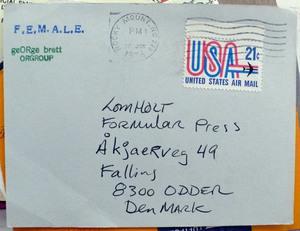 F.E.M.A.L.E.
geORge brett
ORGROUP
ROCKY MOUNT
PM
USA 21¢
UNITED STATES AIR MAIL
LOMHOLT
FORMULAR PRESS
ÅKJAERVEG 49
Falling
8300 ODDER
DENMARK